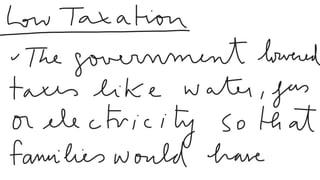 Low Taxation
The government lowered
taxes like water, gas
or electricity so that
families would have